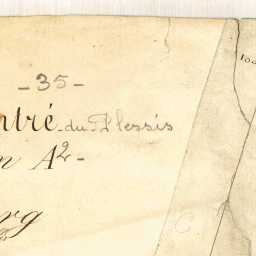 - 35 -
ntré du Plessis
n A2 -
rg
100
C.